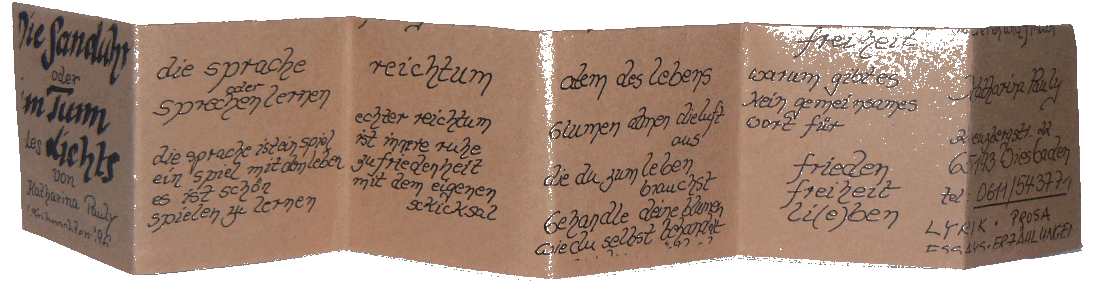 Die Sanduhr
oder
im Turm
des Lichts
von
Katharina Pauly
Weihnachten '92
die sprache
oder
sprechen lernen
die sprache ist ein spiel
ein spiel mit dem leben
es ist schön
spielen zu lernen
reichtum
echter reichtum
ist innere ruhe
zufriedenheit
mit dem eigenen
schicksal
atem des lebens
blumen atmen die luft
aus
die du zum leben
brauchst
behandle deine blumen
wie du selbst behandelt
freiheit
warum gibt es
kein gemeinsames
wort für
frieden
freiheit
li(e)ben
Katharina Pauly
22
Wiesbaden
tel. 0611/543771
LYRIK • PROSA
ESSAYS • ERZÄHLUNGEN